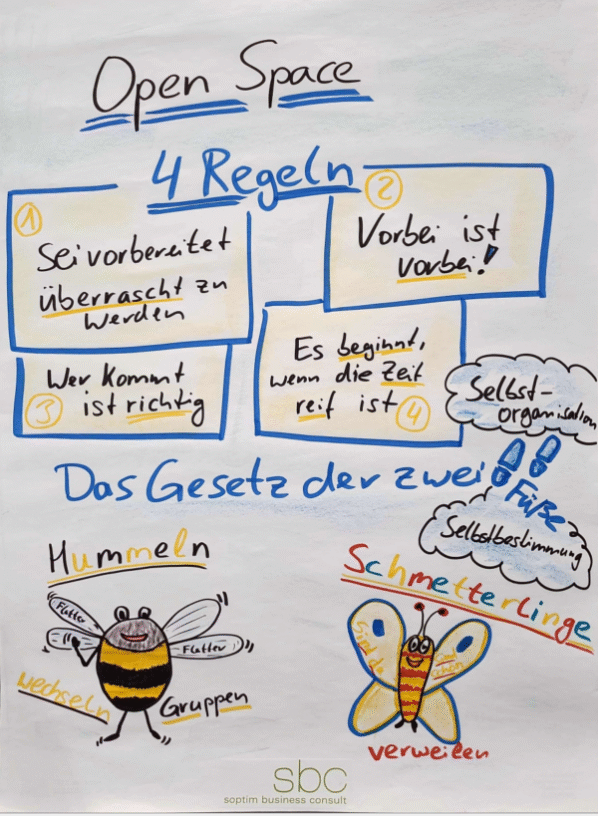 Open Space
4 Regeln
1
Sei vorbereitet
überrascht zu
werden
2
Vorbei ist
vorbei!
Wer kommt
3 ist richtig
Es beginnt,
wenn die Zeit
reif ist 4
Selbst-
organisation
Das Gesetz der zwei
Füße
Selbstbestimmung
Hummeln
Flatter
Flatter
wechseln
Gruppen
Schmetterlinge
Sind da
schön
verweilen
sbc
soptim business consult